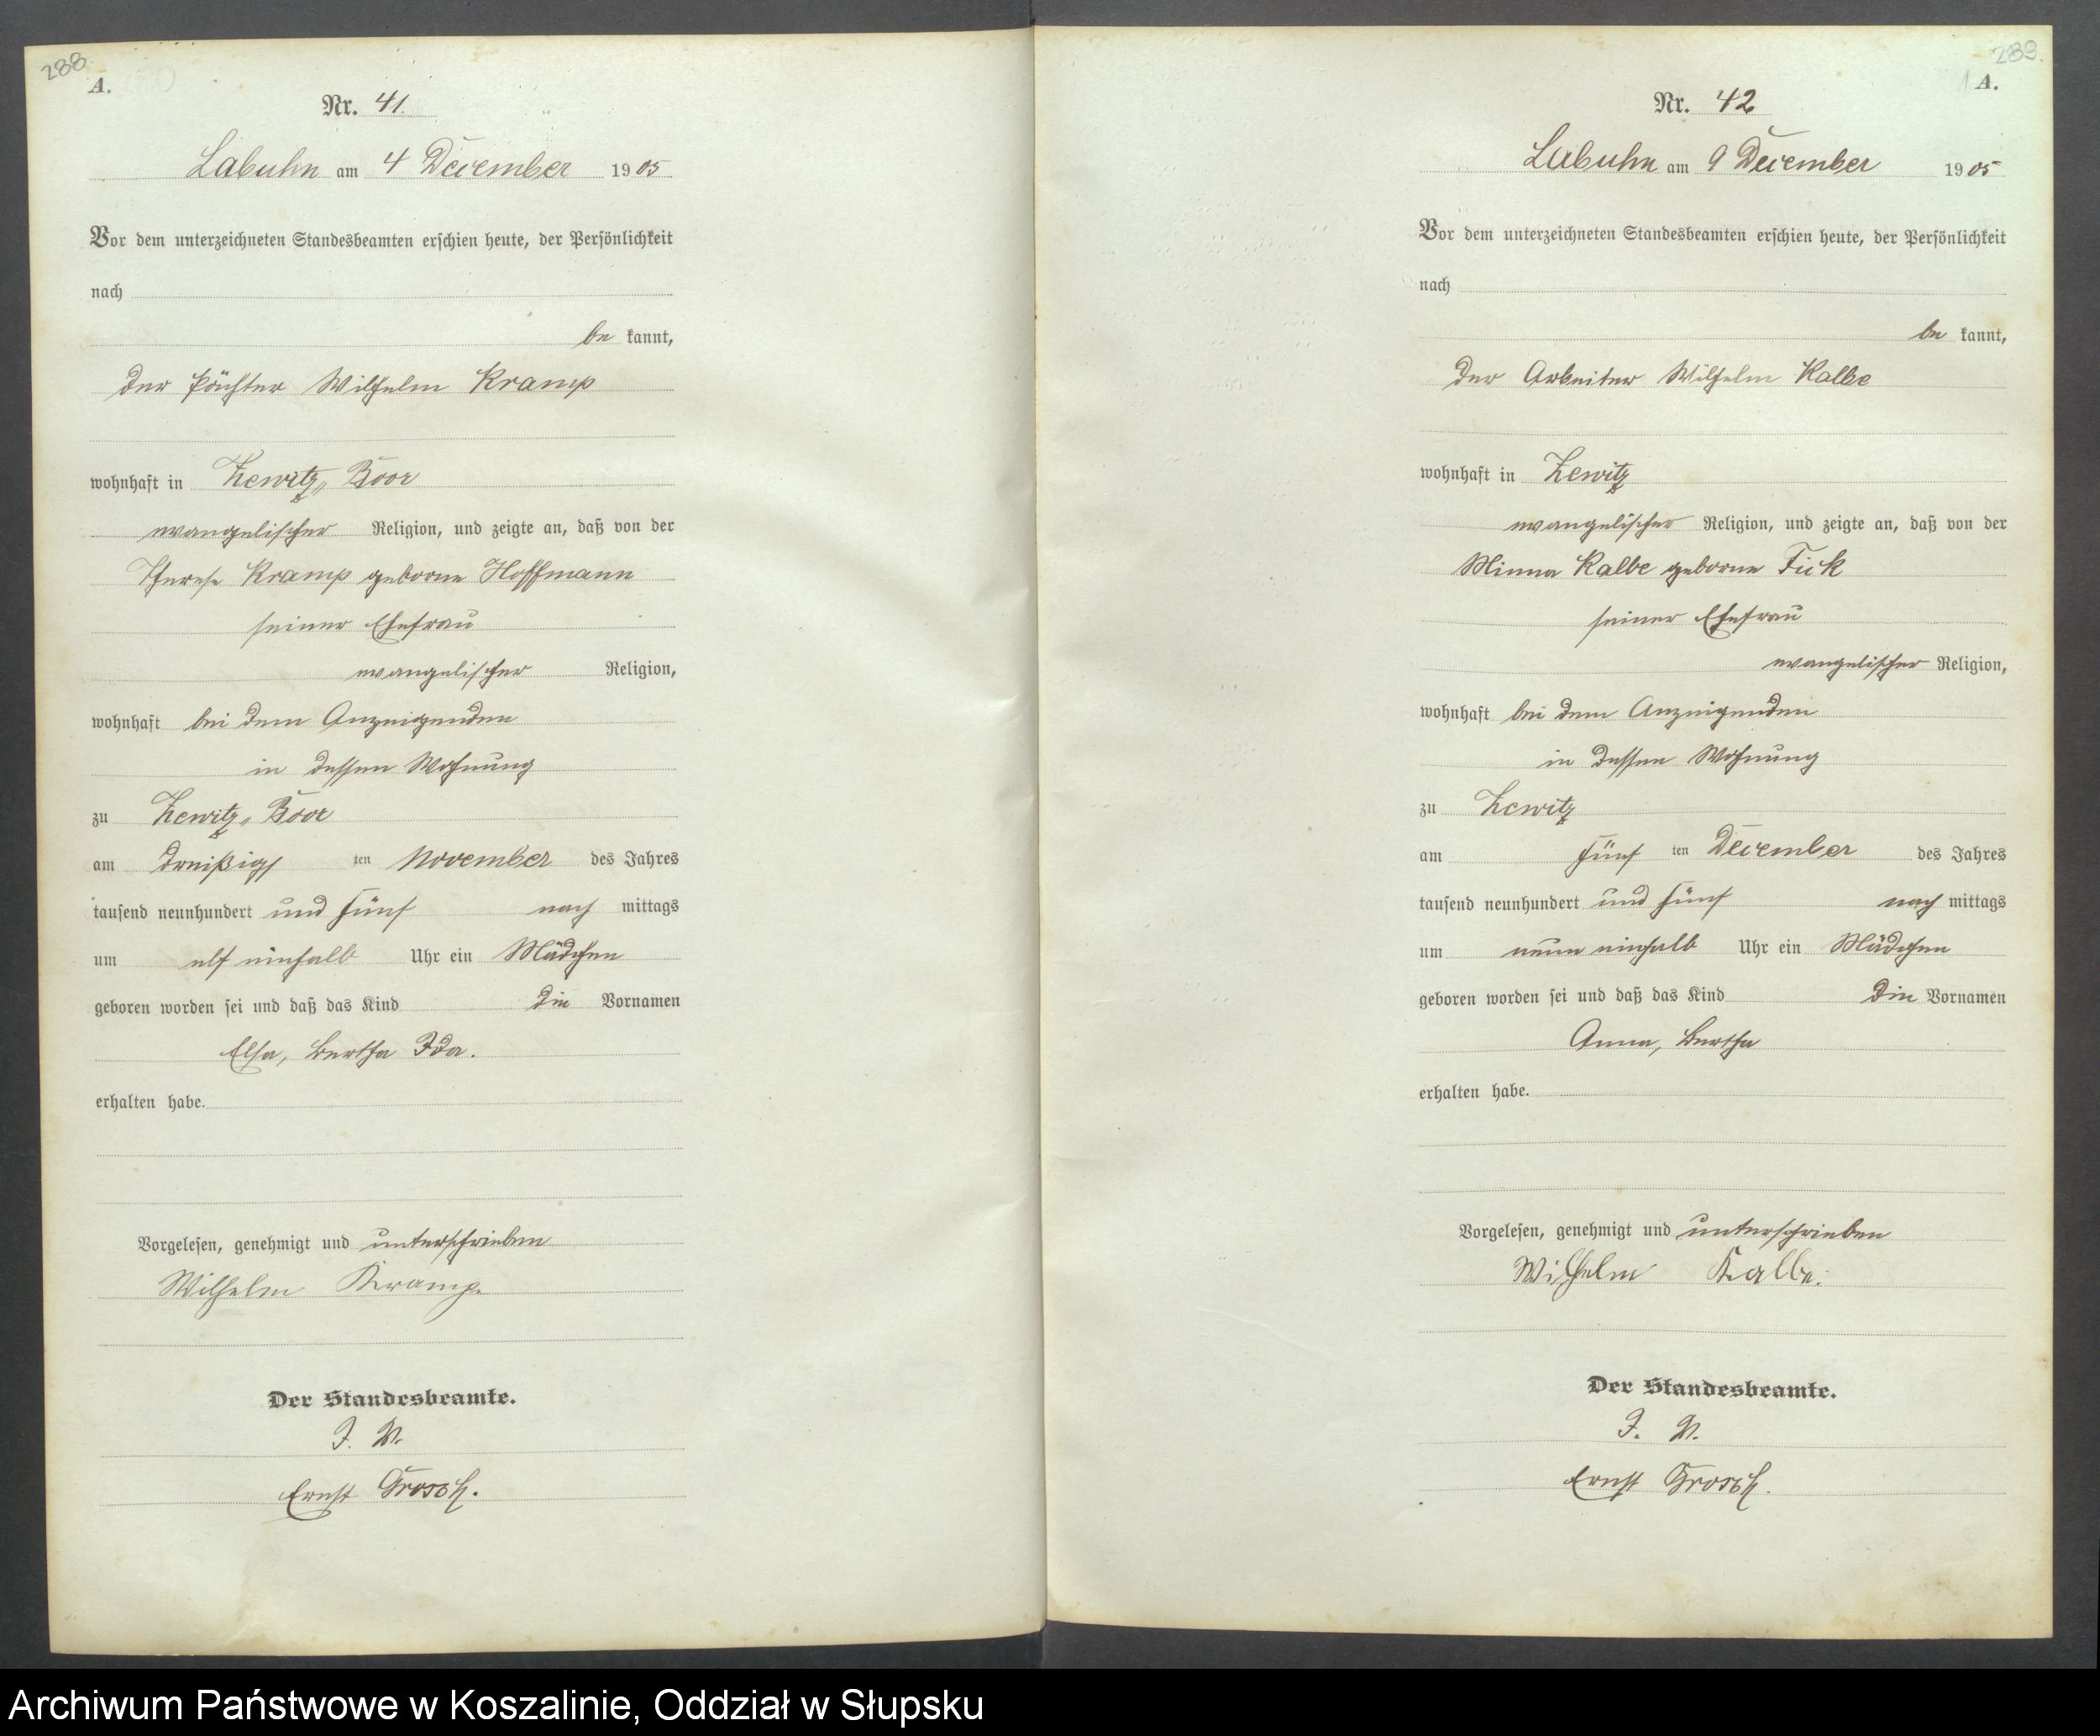 288
A.
Nr. 41.
Labuhn am 4 December 1905
Vor dem unterzeichneten Standesbeamten erschien heute, der Persönlichkeit
nach
be kannt,
der Pächter Wilhelm Kramp
wohnhaft in Zewitz, Boor
evangelischer Religion, und zeigte an, daß von der
Therese Kramp geborne Hoffmann
seiner Ehefrau
evangelischer Religion,
wohnhaft bei dem Anzeigenden
in dessen Wohnung
zu Zewitz, Boor
am dreißigs ten November des Jahres
tausend neunhundert und fünf nach mittags
um elf einhalb Uhr ein Mädchen
geboren worden sei und daß das Kind die Vornamen
Elsa, Bertha Ida.
erhalten habe.
Vorgelesen, genehmigt und unterschrieben
Wilhelm Kramp.
Der Standesbeamte.
J. V.
Ernst Grosch.
289.
A.
Nr. 42
Labuhn am 9 December 1905
Vor dem unterzeichneten Standesbeamten erschien heute, der Persönlichkeit
nach
be kannt,
der Arbeiter Wilhelm Kalbe
wohnhaft in Zewitz
evangelischer Religion, und zeigte an, daß von der
Minna Kalbe geborne Fick
seiner Ehefrau
evangelischer Religion,
wohnhaft bei dem Anzeigenden
in dessen Wohnung
zu Zewitz
am fünf ten December des Jahres
tausend neunhundert und fünf nach mittags
um neun einhalb Uhr ein Mädchen
geboren worden sei und daß das Kind die Vornamen
Anna, Bertha
erhalten habe.
Vorgelesen, genehmigt und unterschrieben
Wilhelm Kalbe.
Der Standesbeamte.
J. V.
Ernst Grosch.
Archiwum Państwowe w Koszalinie, Oddział w Słupsku